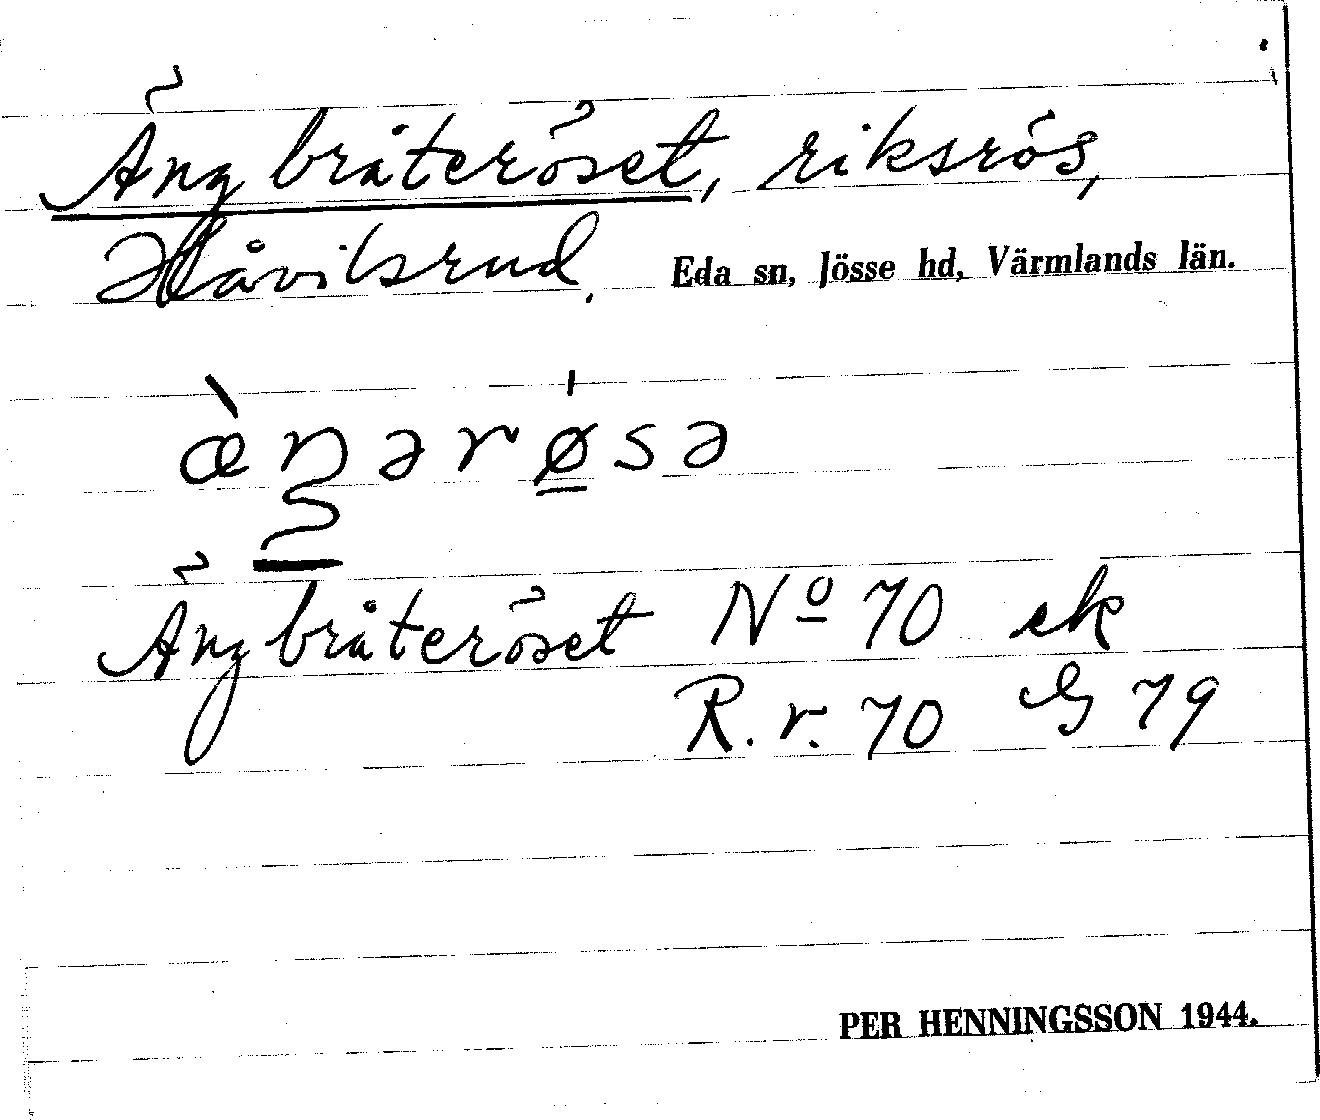 Ängbråteröset, riksrös,
Håvilsrud. Eda sn, Jösse hd, Värmlands län.
æ̀ŋərø̍sə
Ängbråteröset Nº 70 ek
R.r. 70 G 79
PER HENNINGSSON 1944.